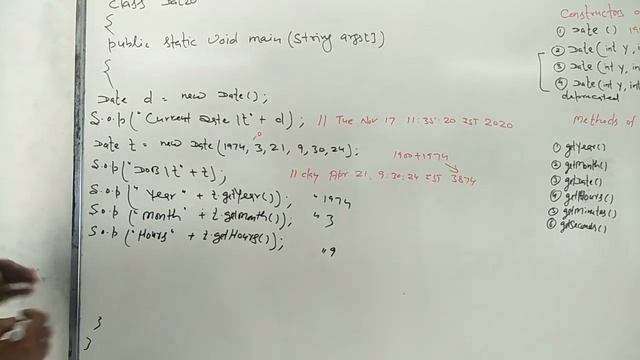 class Date
{
public static void main (String args[])
{
Date d = new Date();
S.o.p("Current Date \t" + d); // Tue Nov 17 11:35:20 IST 2020
Date t = new Date(1974, 3, 21, 9, 30, 24);
1900+1974
S.o.p("DOB \t" + t); // day Apr 21, 9:30:24 IST 3874
S.o.p("Year" + t.getYear()); " 1974
S.o.p("Month" + t.getMonth()); " 3
S.o.p("Hours" + t.getHours()); " 9
}
}
Constructors o
① Date ()
② Date (int y, in
③ Date (int y, in
④ Date (int y, in
deprecated
Methods of
① getYear()
② getMonth()
③ getDate()
④ getHours()
⑤ getMinutes()
⑥ getSeconds()